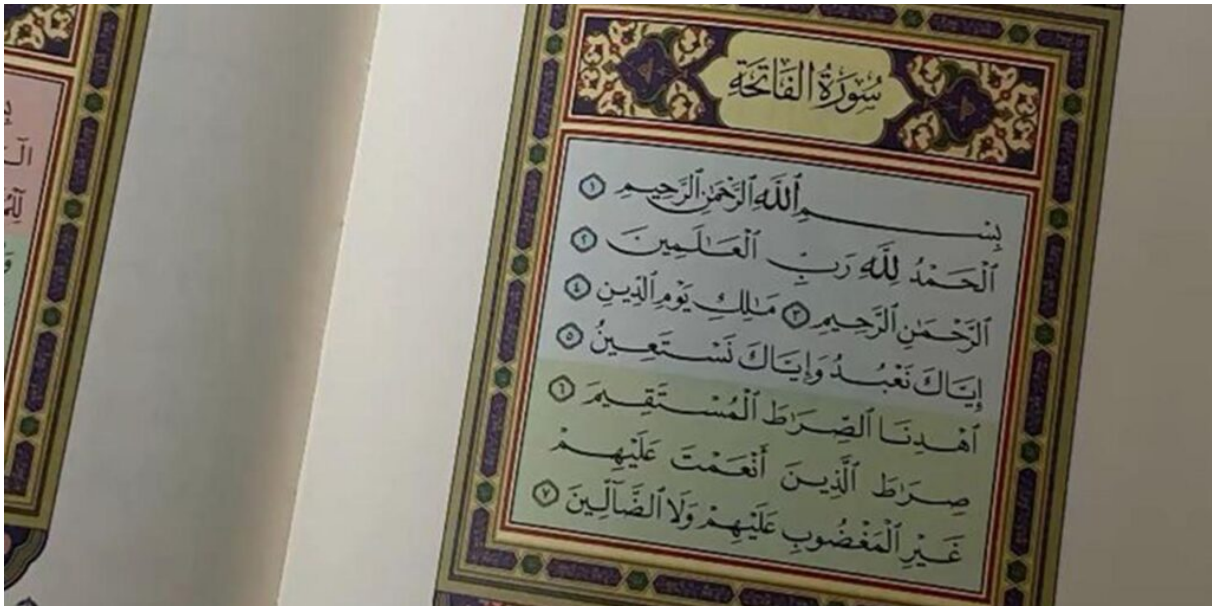 سُورَةُ الفَاتِحَةِ
بِسْمِ ٱللَّهِ ٱلرَّحْمَٰنِ ٱلرَّحِيمِ ١
ٱلْحَمْدُ لِلَّهِ رَبِّ ٱلْعَٰلَمِينَ ٢
ٱلرَّحْمَٰنِ ٱلرَّحِيمِ ٣ مَٰلِكِ يَوْمِ ٱلدِّينِ ٤
إِيَّاكَ نَعْبُدُ وَإِيَّاكَ نَسْتَعِينُ ٥
ٱهْدِنَا ٱلصِّرَٰطَ ٱلْمُسْتَقِيمَ ٦
صِرَٰطَ ٱلَّذِينَ أَنْعَمْتَ عَلَيْهِمْ
غَيْرِ ٱلْمَغْضُوبِ عَلَيْهِمْ وَلَا ٱلضَّآلِّينَ ٧